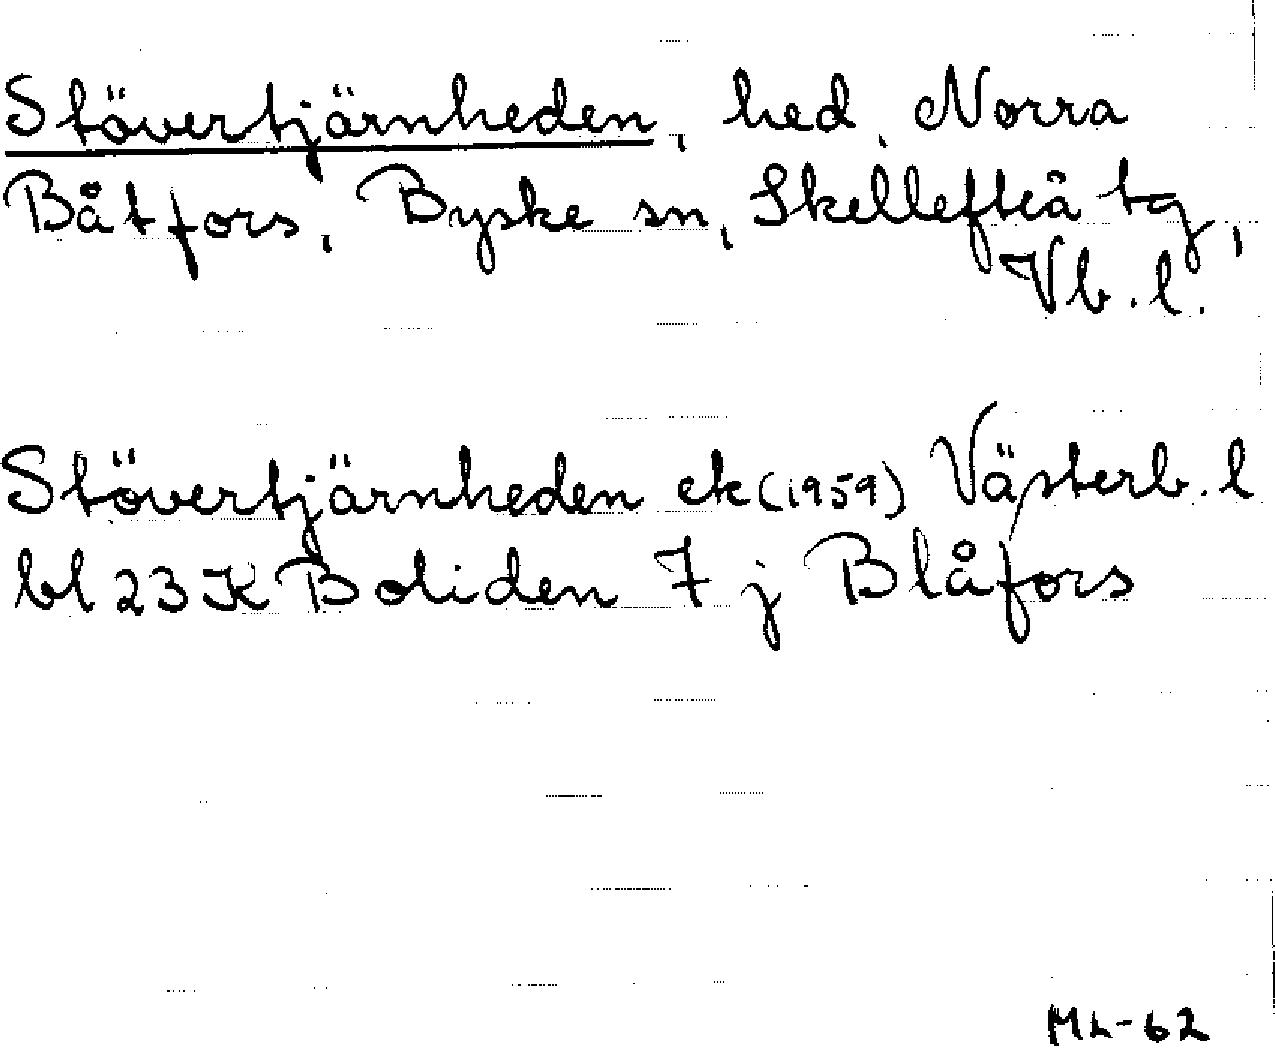 Stövertjärnheden, hed, Norra
Båtfors, Byske sn, Skellefteå tg,
Vb.l.
Stövertjärnheden ek(1959) Västerb.l
bl 23K Boliden 7 j Blåfors
ML-62